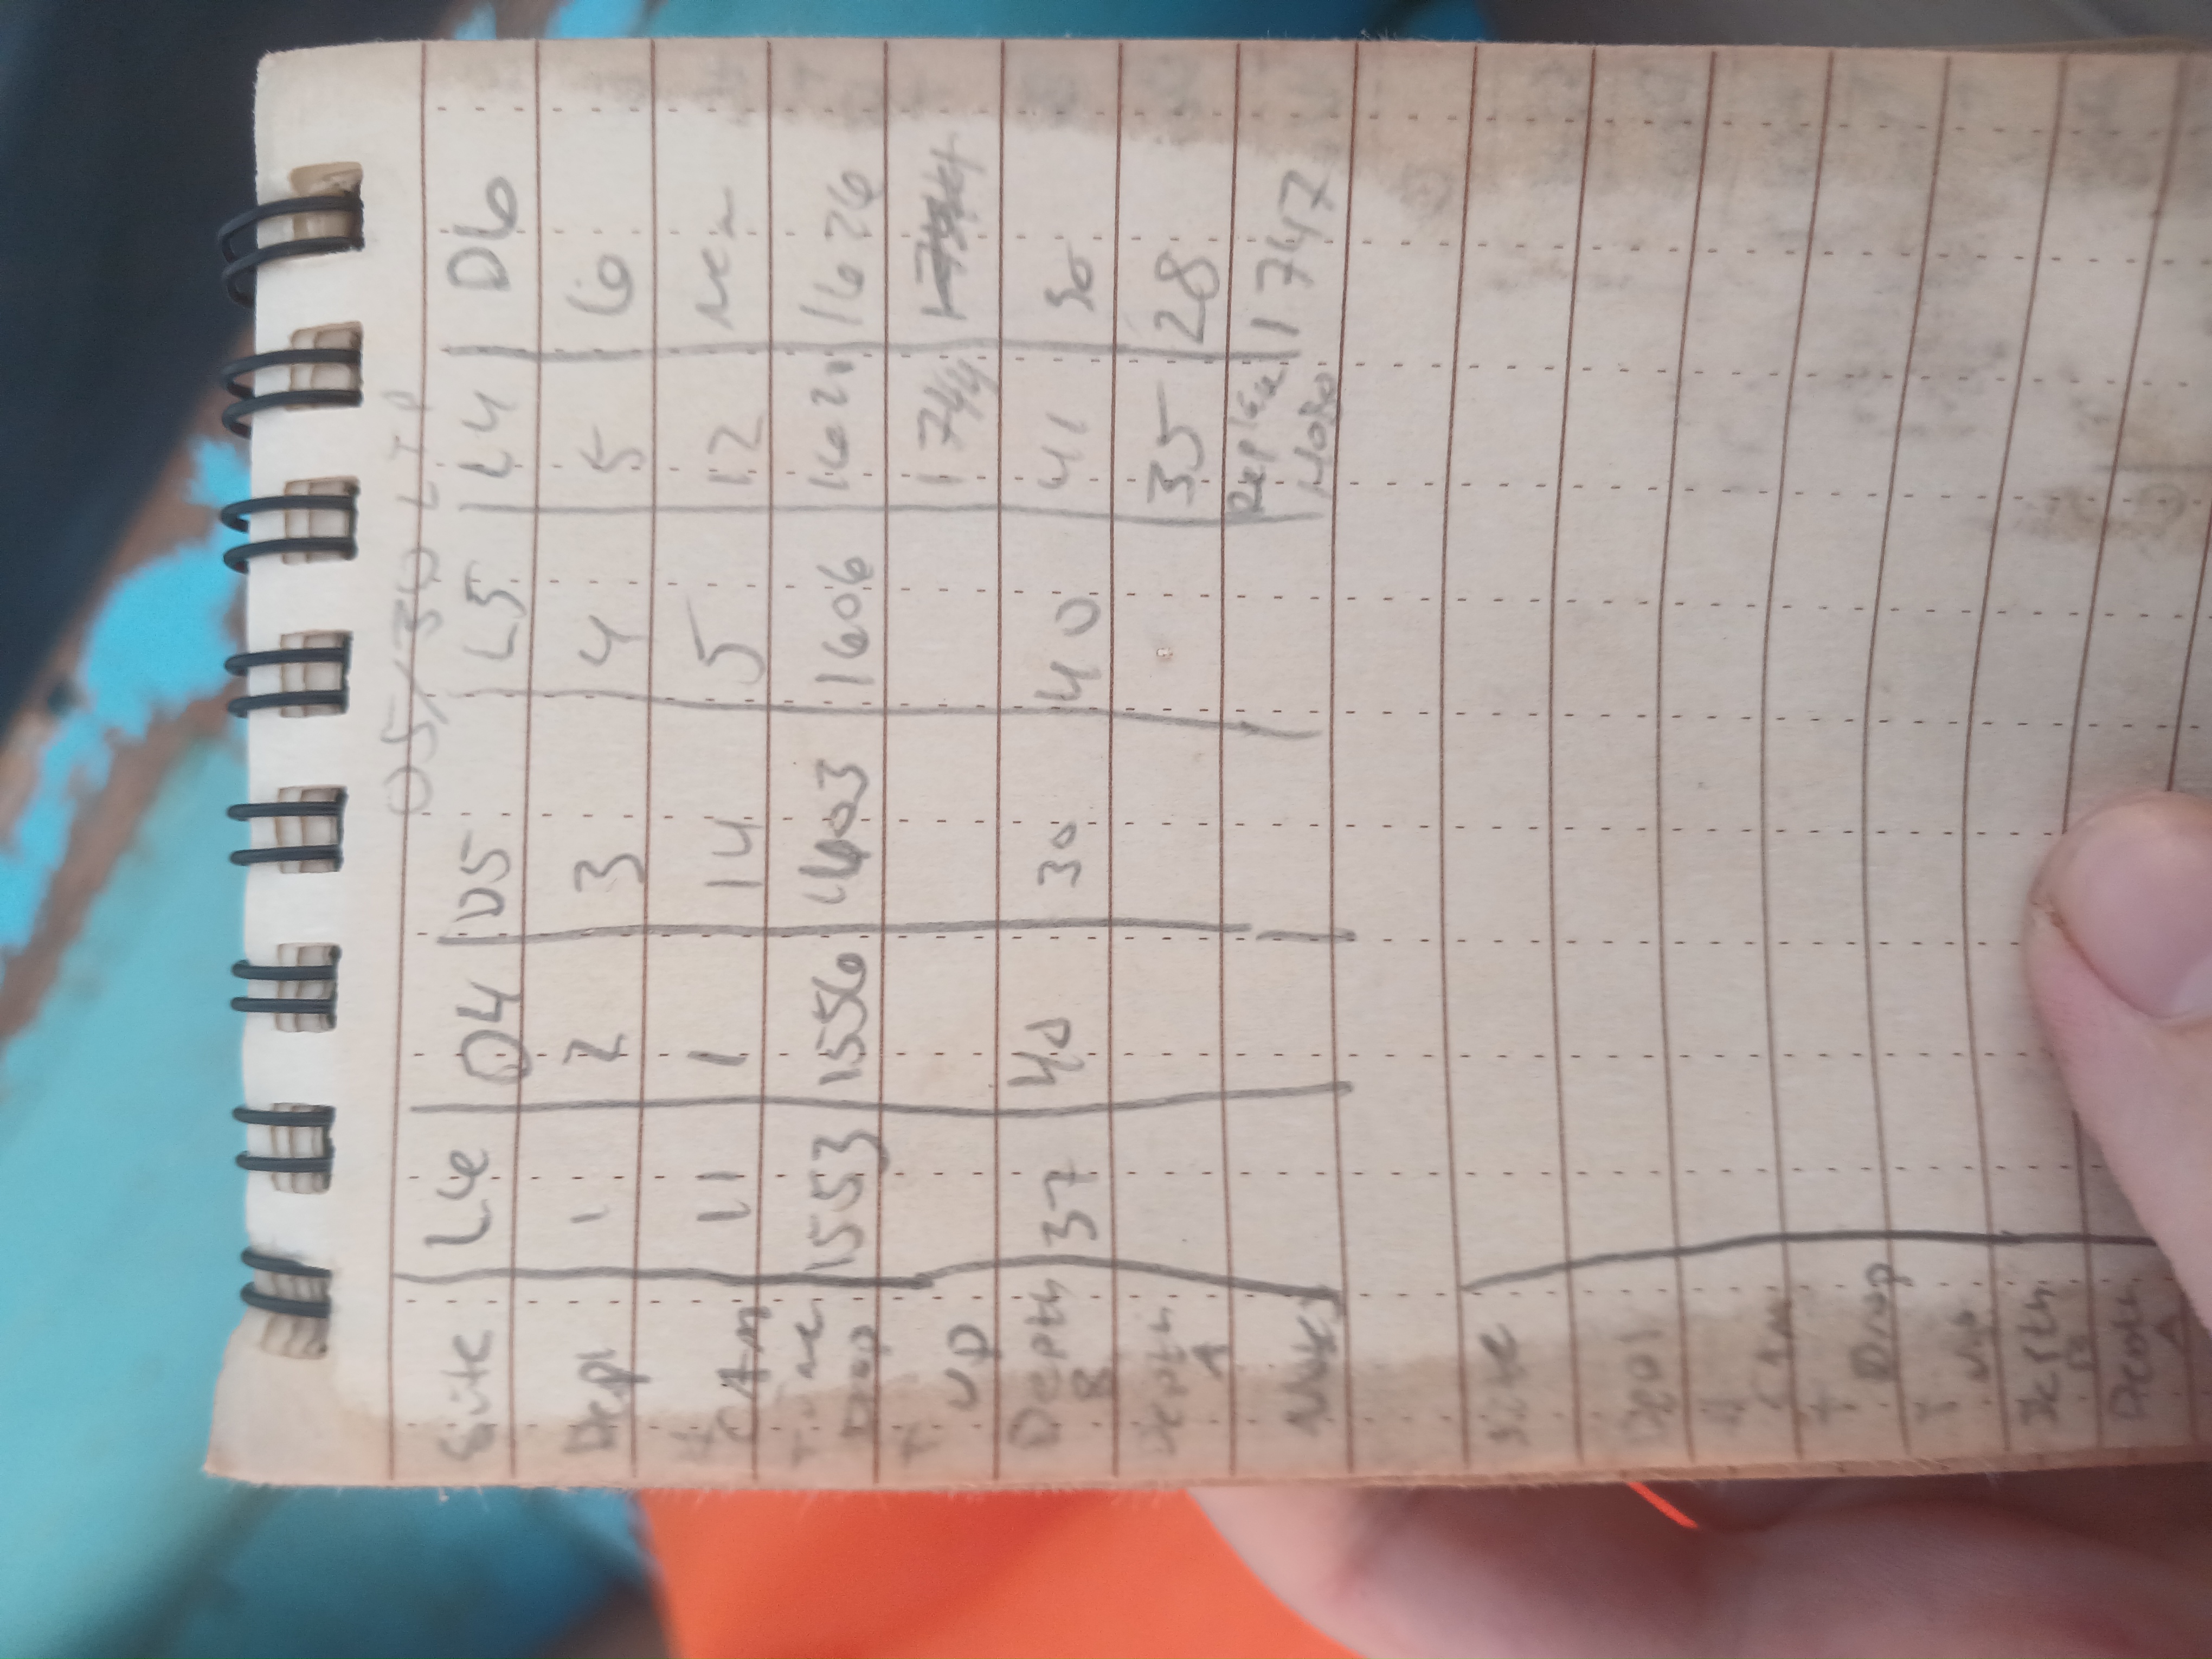 05/30 LTP
Site L6 D4 D5 L5 L4 D6
Depl 1 2 3 4 5 6
# CAM 11 1 14 5 12 New
Time
Drop 1553 1556 1603 1606 1626
T
UP 1744
Depth 37 40 30 40 41 30
B
Depth 35 28
A
Notes Replace 1747
HOBO
Site
Depl
#
CAM
T
Drop
T
up
Depth
B
Depth
A